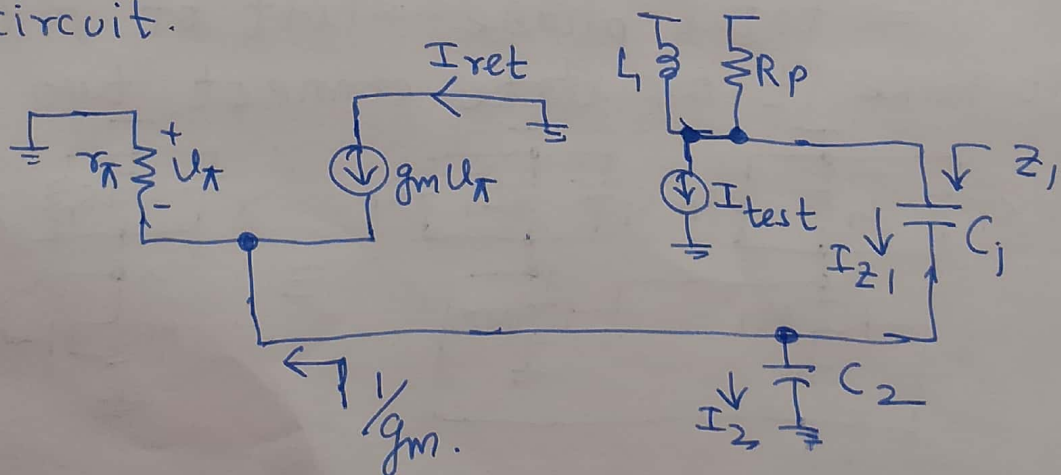 circuit.
Iret
L1
Rp
+
rπ
Uπ
-
gmUπ
Itest
Z1
IZ1
C1
1/gm.
I2
C2